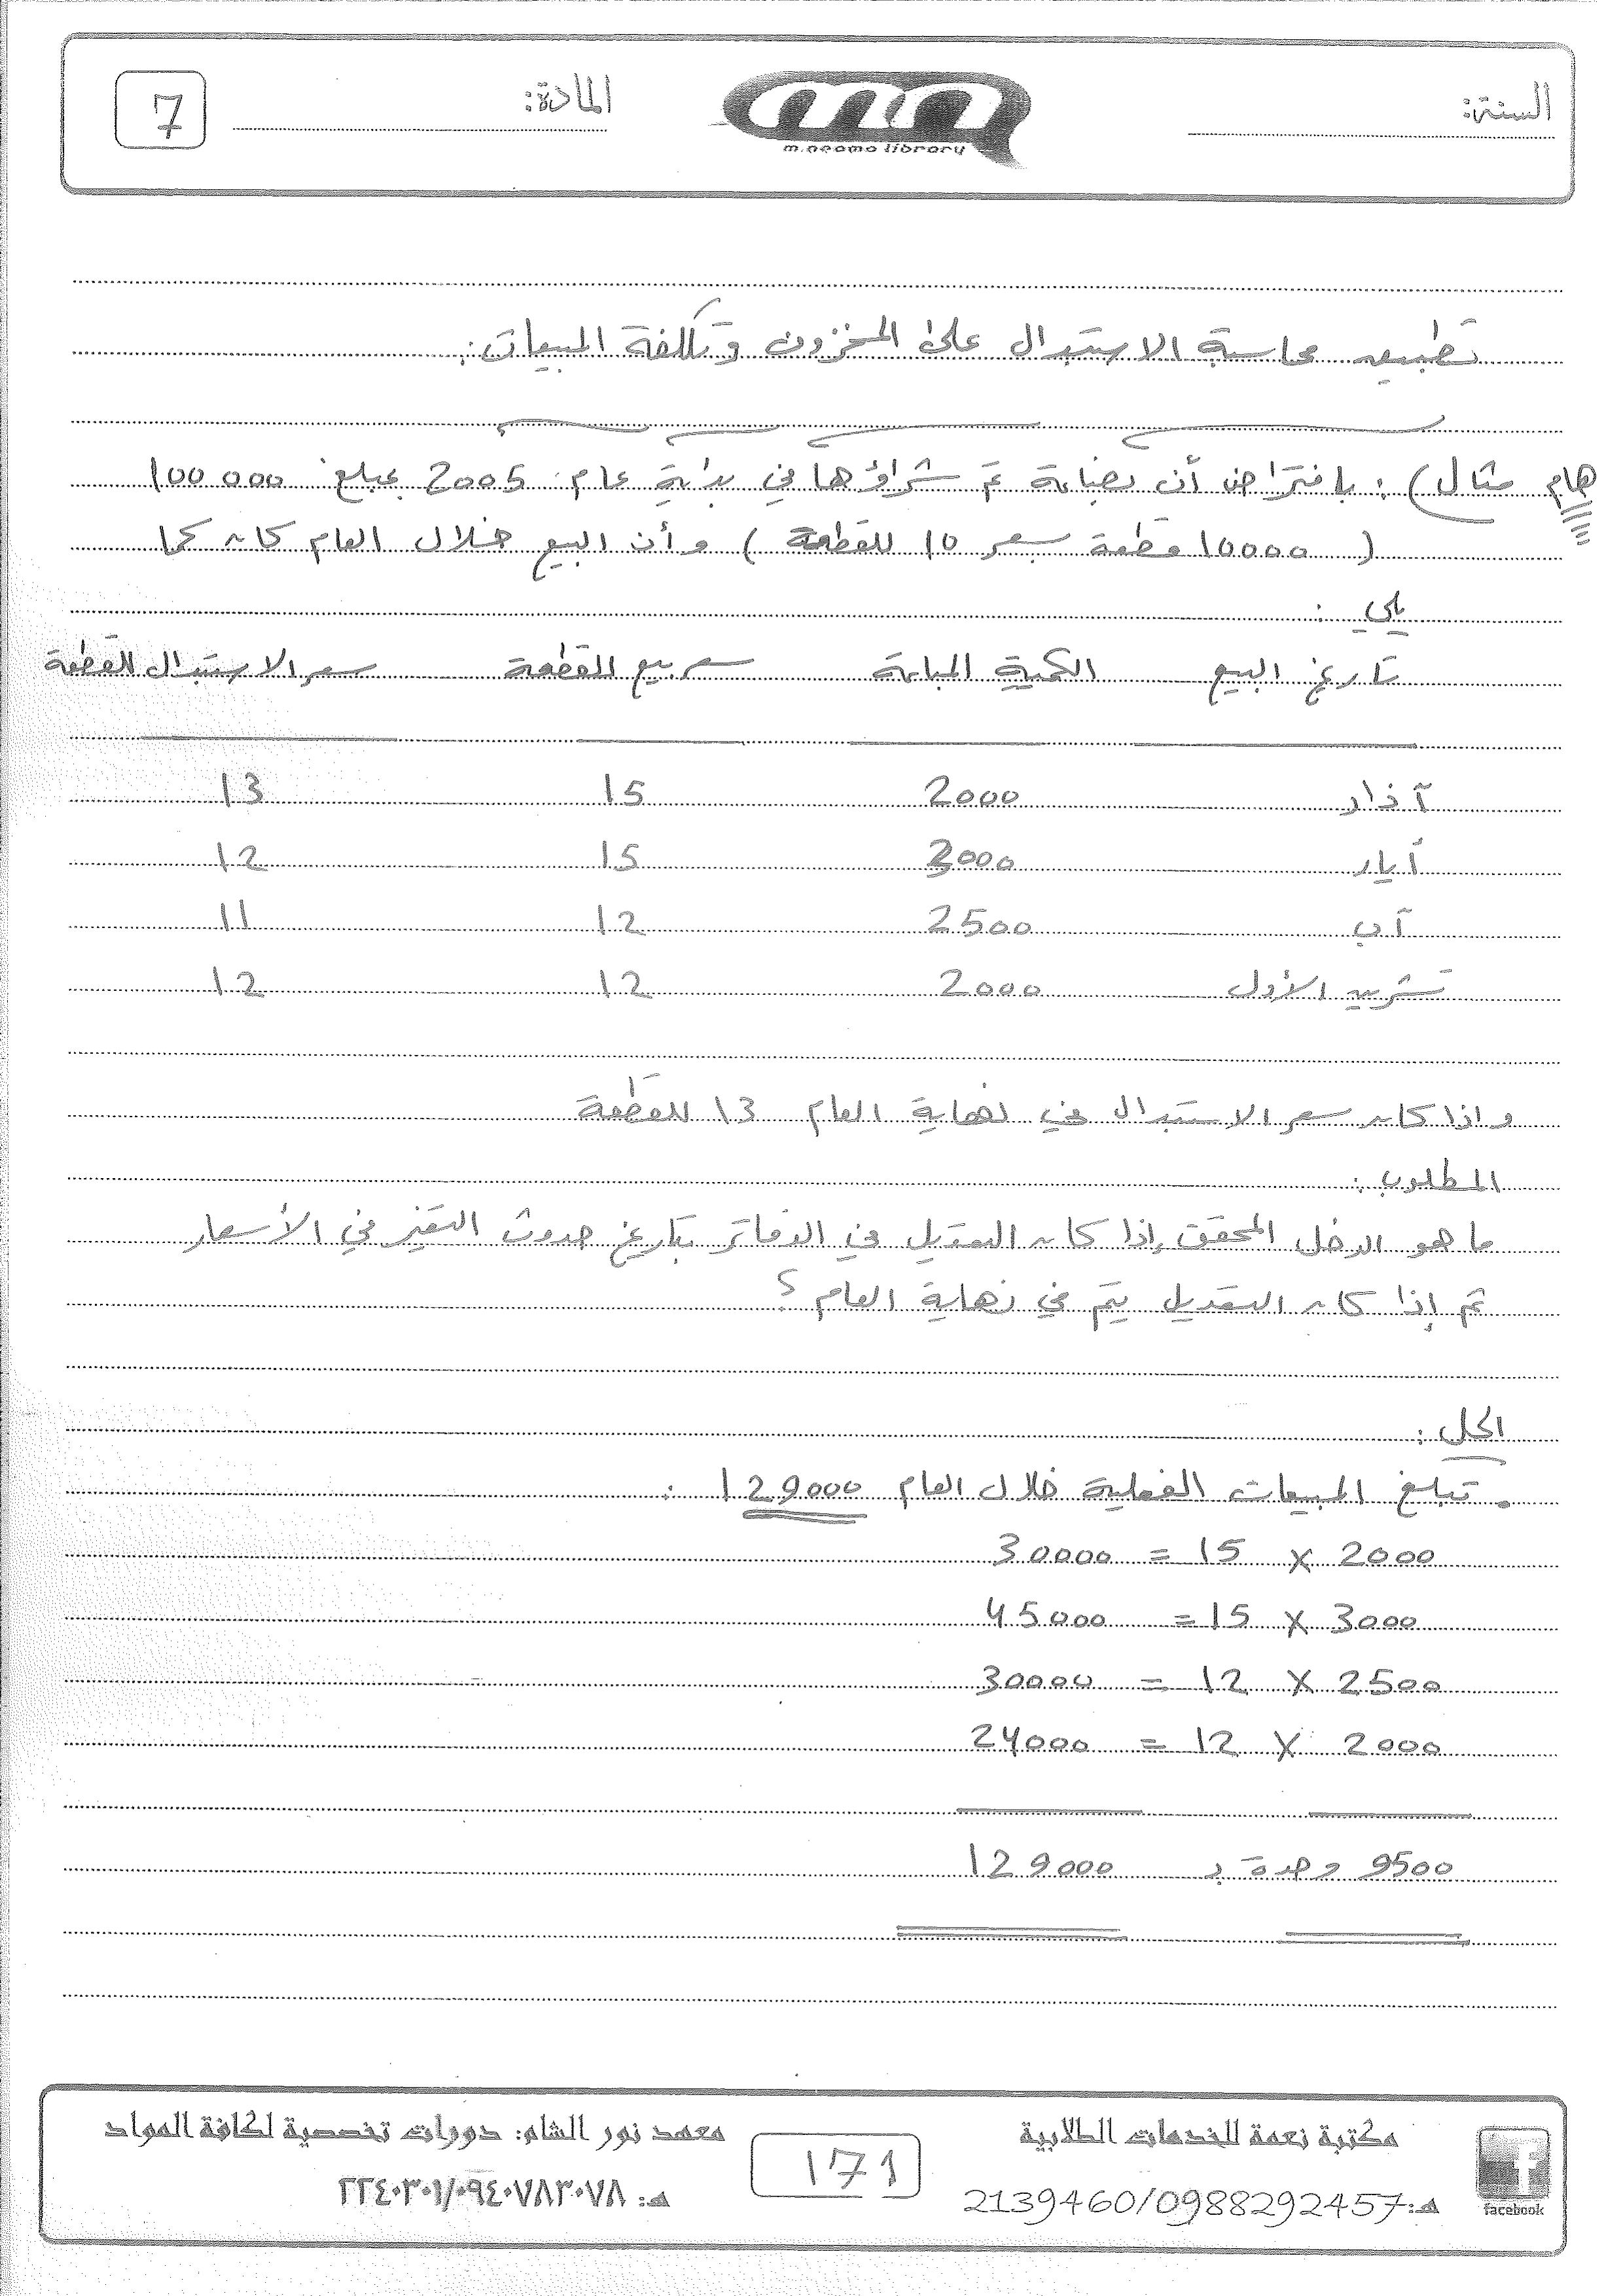 السنة:
m.neama library
المادة:
7
تطبيق محاسبة الاستبدال على المخزون وتكلفة المبيعات:
هام مثال) : بافتراض أن بضاعة تم شراؤها في بداية عام 2005 بمبلغ 100 000
( 10000 قطعة بسعر 10 للقطعة ) وأن البيع خلال العام كان كما
يلي :
تاريخ البيع الكمية المباعة سعر بيع القطعة سعر الاستبدال للقطعة
آذار 2000 15 13
أيار 3000 15 12
آب 2500 12 11
تشرين الأول 2000 12 12
واذا كان سعر الاستبدال في نهاية العام 13 للقطعة
المطلوب :
ما هو الدخل المحقق إذا كان التعديل في الدفاتر بتاريخ حدوث التغير في الأسعار
ثم إذا كان التعديل يتم في نهاية العام ؟
الحل :
. تبلغ المبيعات الفعلية خلال العام 129000 :
2000 × 15 = 30000
3000 × 15 = 45000
2500 × 12 = 30000
2000 × 12 = 24000
9500 وحدة بـ 129000
facebook
مكتبة نعمة للخدمات الطلابية
هـ: 2139460/0988292457
171
معهد نور الشام: دورات تخصصية لكافة المواد
هـ: ٢٢٤٠٣٠١/٠٩٤٠٧٨٣٠٧٨